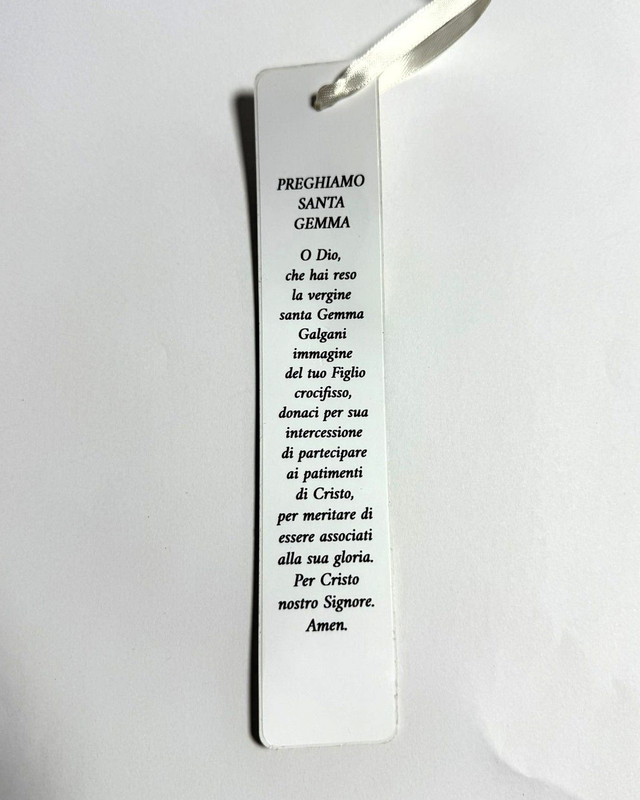 PREGHIAMO
SANTA
GEMMA
O Dio,
che hai reso
la vergine
santa Gemma
Galgani
immagine
del tuo Figlio
crocifisso,
donaci per sua
intercessione
di partecipare
ai patimenti
di Cristo,
per meritare di
essere associati
alla sua gloria.
Per Cristo
nostro Signore.
Amen.